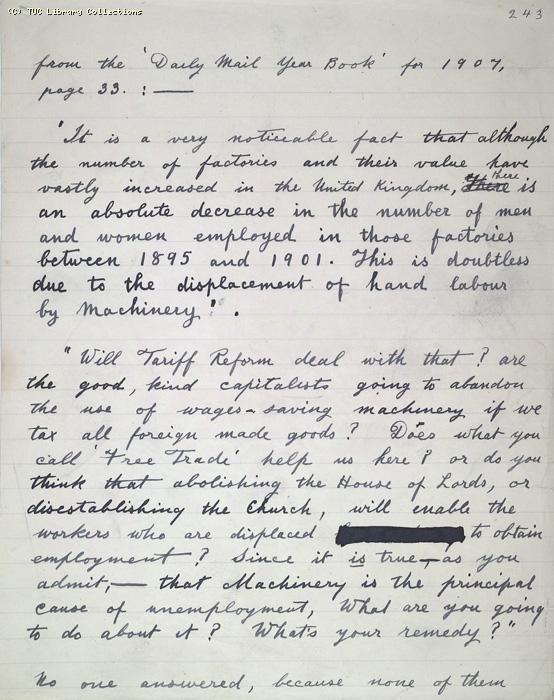 (C) TUC Library Collections
243
from the 'Daily Mail Year Book' for 1907,
page 33. : —
"It is a very noticeable fact that although
the number of factories and their value have
vastly increased in the United Kingdom, there is
an absolute decrease in the number of men
and women employed in those factories
between 1895 and 1901. This is doubtless
due to the displacement of hand labour
by Machinery".
"Will Tariff Reform deal with that? are
the good, kind capitalists going to abandon
the use of wages-saving machinery if we
tax all foreign made goods? Does what you
call 'Free Trade' help us here? or do you
think that abolishing the House of Lords, or
disestablishing the Church, will enable the
workers who are displaced to obtain
employment? Since it is true—as you
admit,— that Machinery is the principal
cause of unemployment, What are you going
to do about it? What's your remedy?"
No one answered, because none of them